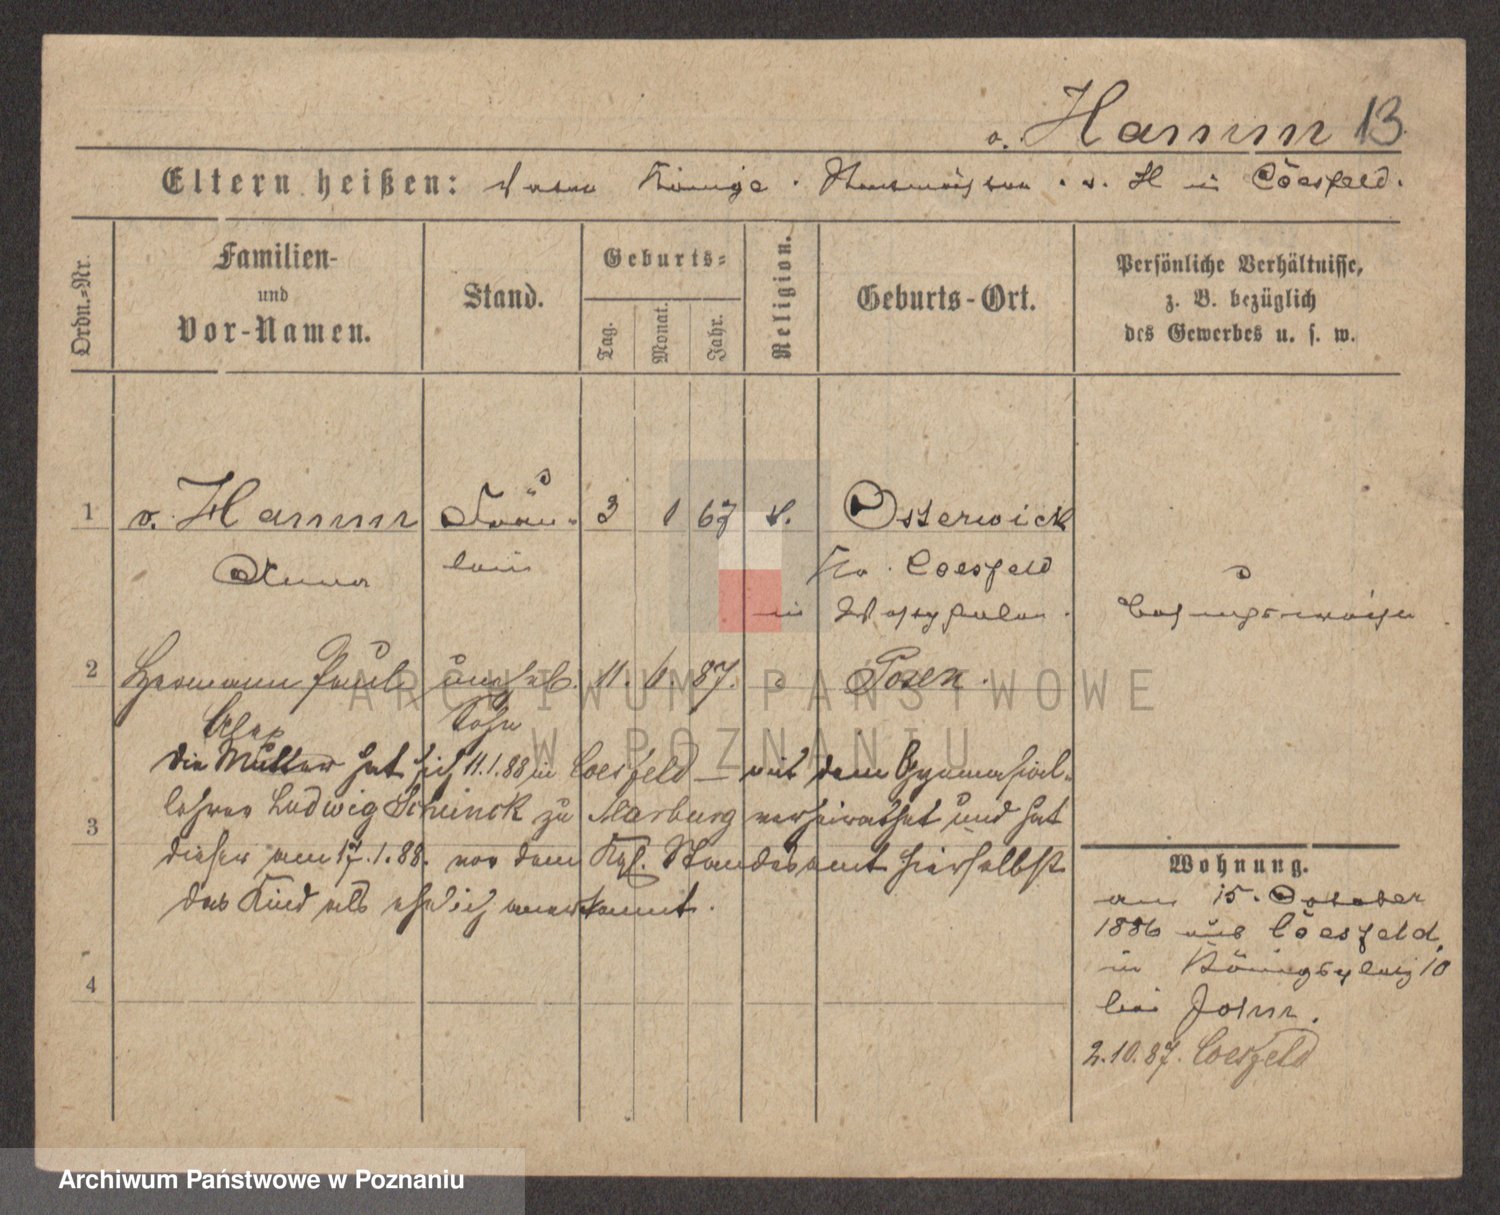 v. Hamm 13
Eltern heißen: Vater Königl. Rentmeister . v. H in Cöesfeld.
Ordn.=Nr.
Familien-
und
Vor-Namen.
Stand.
Geburts=
Tag.
Monat.
Jahr.
Religion.
Geburts-Ort.
Persönliche Verhältnisse,
z. B. bezüglich
des Gewerbes u. s. w.
1 v. Hamm Fräu- 3 1 67 k. Osterwick
Anna lein Kr. Coesfeld
in Westphalen.
2 Hermann Paul unehel. 11. 6. 87. Posen.
Sohn
die Mutter hat sich 11.1.88 in Coesfeld – mit dem Gymnasial-
lehrer Ludwig Schunck zu Marburg verheirathet und hat
3
dieser am 17.1.88. vor dem Kgl. Standesamt hierselbst
das Kind als ehelich anerkannt.
4
Wohnung.
am 15. October
1886 aus Cöesfeld,
in Königsplatz 10
bei John.
2.10.87. Coesfeld
ARCHIWUM PAŃSTWOWE
W POZNANIU
Archiwum Państwowe w Poznaniu